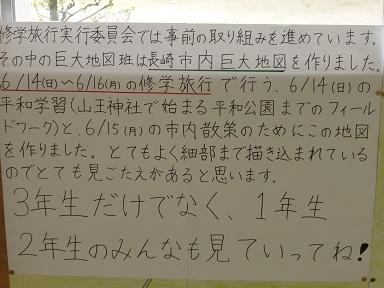 修学旅行実行委員会では事前の取り組みを進めています。
その中の巨大地図班は長崎市内巨大地図を作りました。
6/14(日)～6/16(月)の修学旅行で行う、6/14(日)の
平和学習(山王神社で始まる平和公園までのフィー
ルドワーク)と、6/15(月)の市内散策のためにこの地図
を作りました。とてもよく細部まで描き込まれている
のでとても見ごたえがあると思います。
3年生だけでなく、1年生
2年生のみんなも見ていってね!